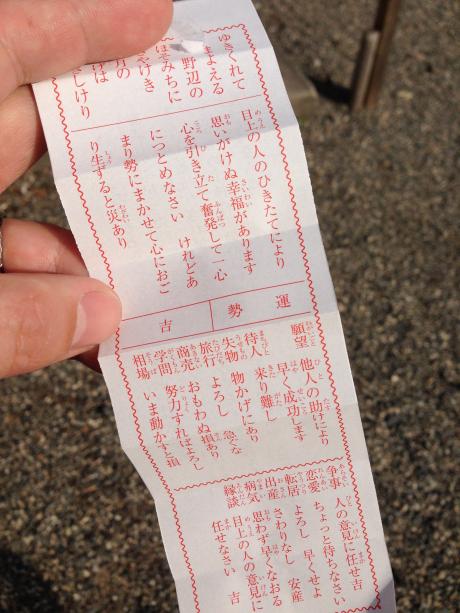 ゆきくれて
まよえる
野辺の
ほそみちに
やけき
月の
げは
しけり
目上の人のひきたてにより
思いがけぬ幸福があります
心を引き立て奮発して一心
につとめなさい けれどあ
まり勢にまかせて心におご
り生ずると災あり
運勢 吉
願望 他人の助けにより
早く成功します
待人 来り難し
失物 物かげにあり
旅行 よろし 急ぐな
商売 おもわぬ損あり
学問 努力すればよろし
相場 いま動かすと損
争事 人の意見に任せ吉
恋愛 ちょっと待ちなさい
転居 よろし 早くせよ
出産 さわりなし 安産
病気 思わず早くなおる
縁談 目上の人の意見に
任せなさい 吉